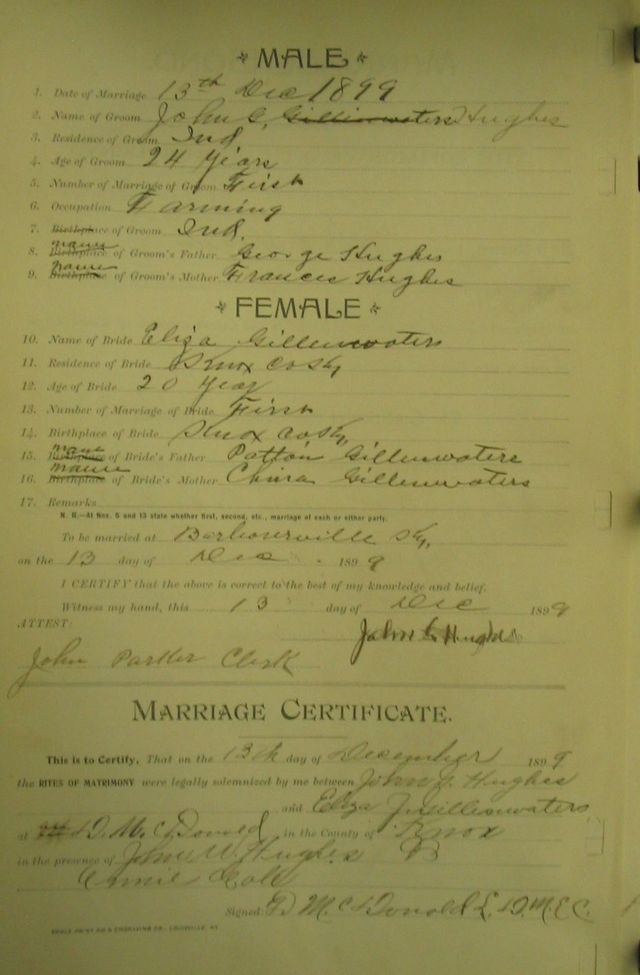 MALE
1. Date of Marriage 13th Dec 1899
2. Name of Groom John C. Gillenwaters Hughes
3. Residence of Groom Ind
4. Age of Groom 24 Years
5. Number of Marriage of Groom First
6. Occupation Farming
7. Birthplace of Groom Ind.
8. Birthplace name of Groom's Father George Hughes
9. Birthplace name of Groom's Mother Frances Hughes
FEMALE
10. Name of Bride Eliza Gillenwaters
11. Residence of Bride Knox Co Ky
12. Age of Bride 20 Year
13. Number of Marriage of Bride First
14. Birthplace of Bride Knox Co Ky
15. Birthplace name of Bride's Father Patton Gillenwaters
16. Birthplace name of Bride's Mother Gillenwaters
17. Remarks
N. B.—At Nos. 5 and 13 state whether first, second, etc., marriage of each or either party.
To be married at Barbourville Ky,
on the 13 day of Dec 1899
I CERTIFY that the above is correct to the best of my knowledge and belief.
Witness my hand, this 13 day of Dec 1899
ATTEST:
John C Hughes
John Parker Clerk
MARRIAGE CERTIFICATE.
This is to Certify, That on the 13th day of December 1899
the RITES OF MATRIMONY were legally solemnized by me between John C. Hughes
and Eliza J Gillenwaters
at D. McDonald in the County of Knox
in the presence of John W. Hughes
Annie Cole
Signed: D McDonald L. D. M. E. C.